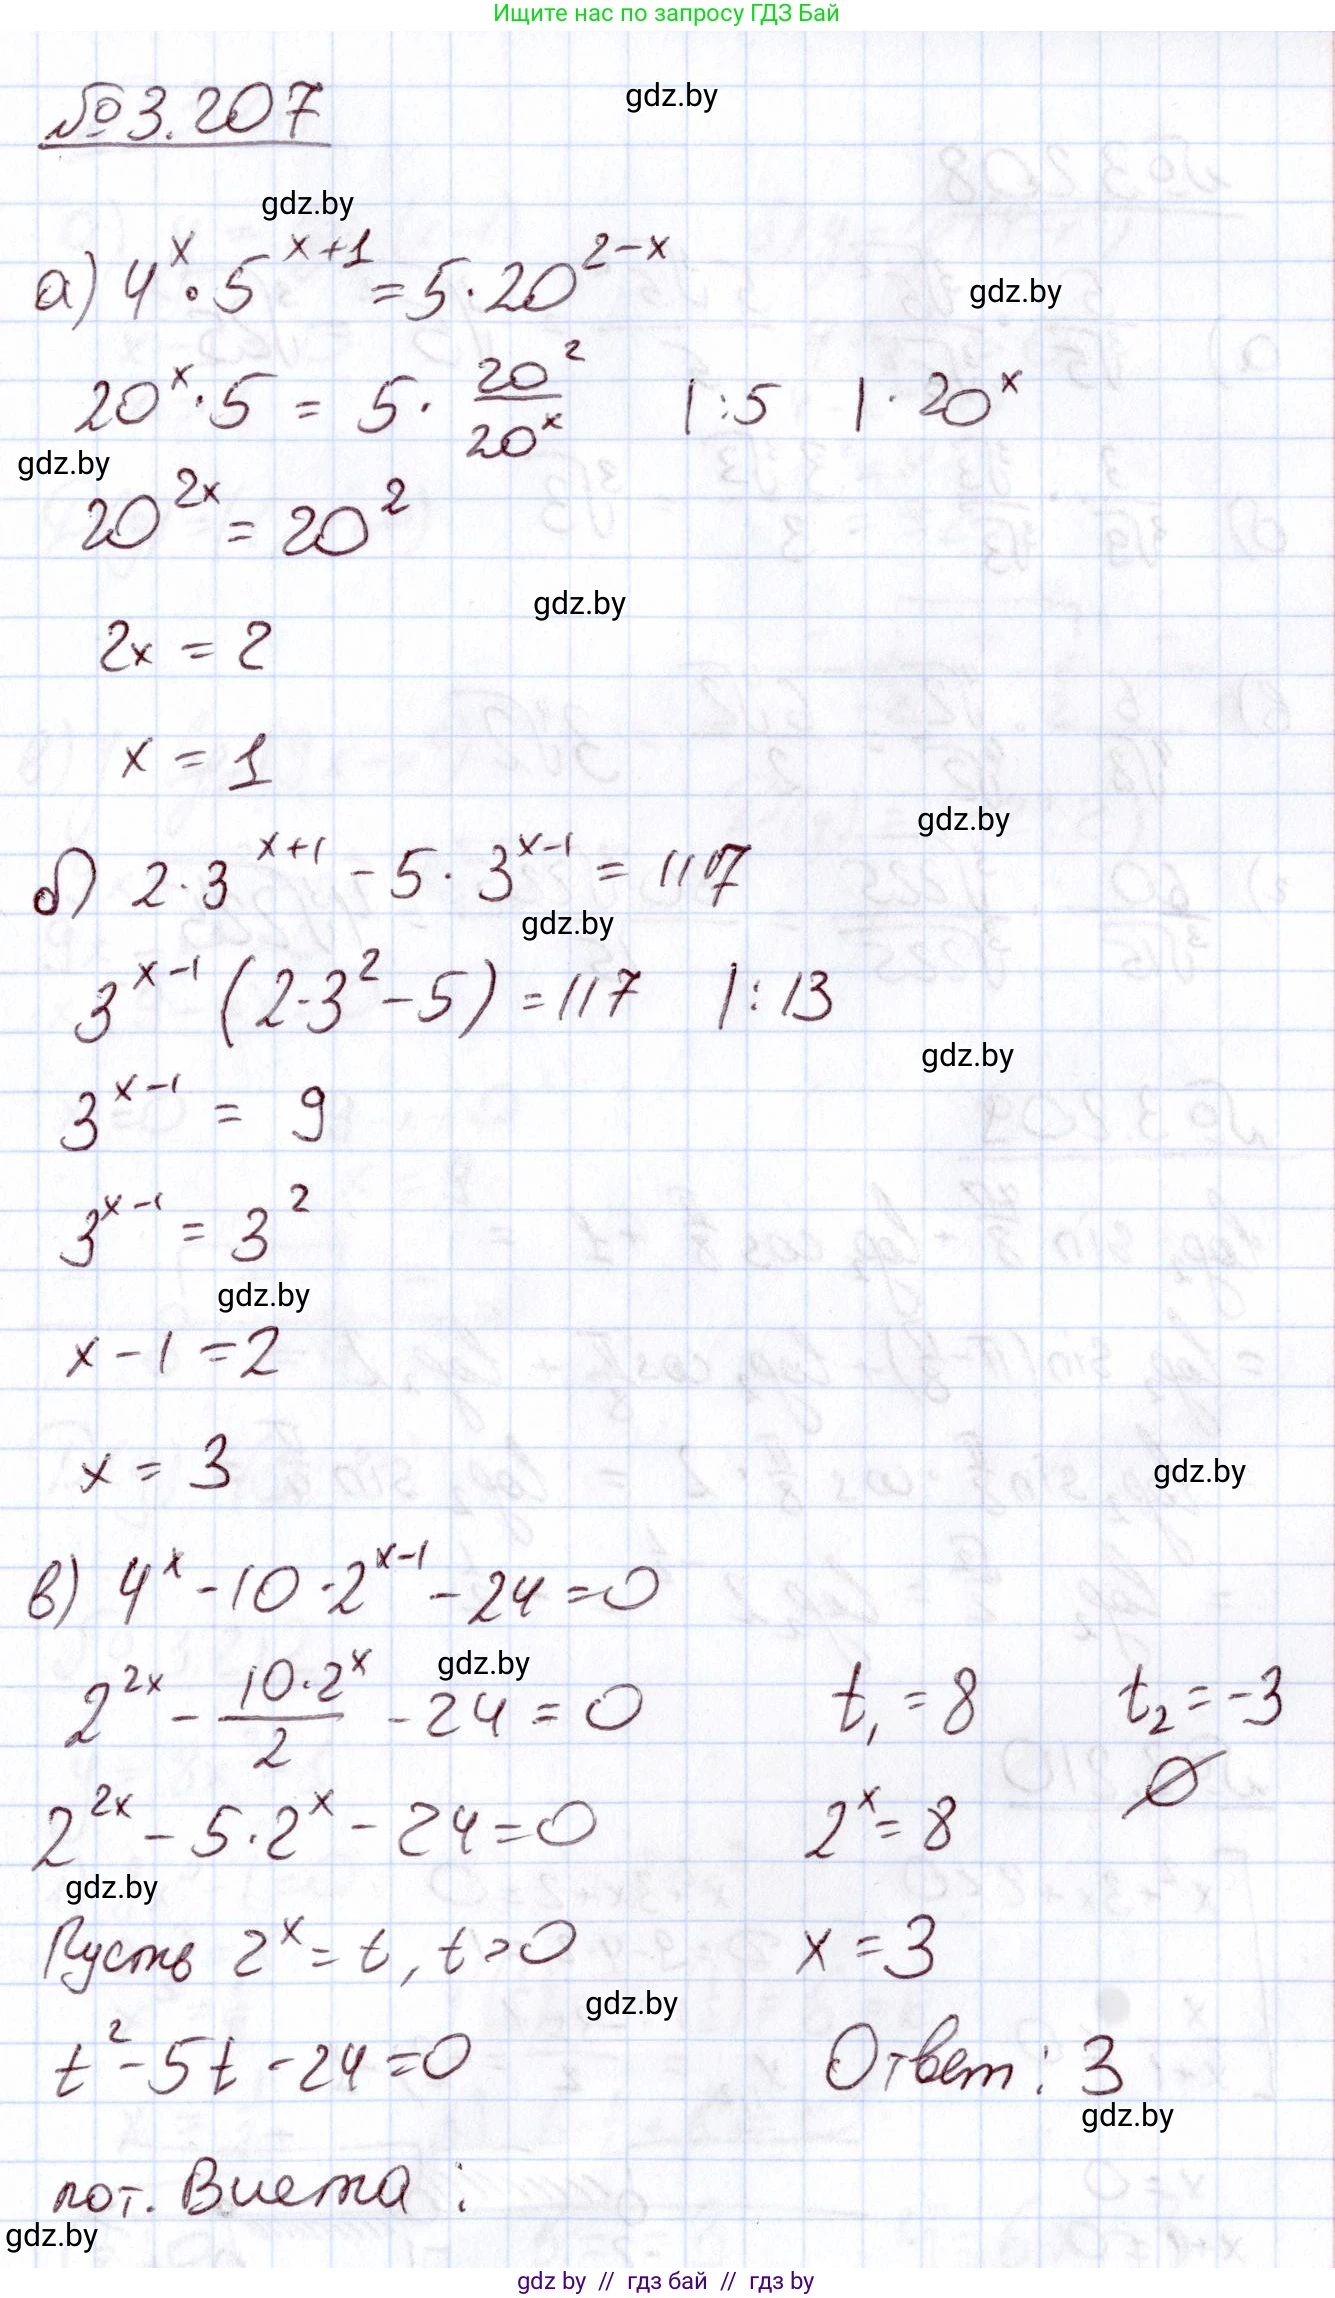 Ищите нас по запросу ГДЗ Бай
№3.207
gdz.by
gdz.by
а) 4^x · 5^(x+1) = 5 · 20^(2-x)
gdz.by
20^x · 5 = 5 · 20^2/20^x |:5 |· 20^x
gdz.by
20^(2x) = 20^2
gdz.by
2x = 2
x = 1
gdz.by
б) 2·3^(x+1) - 5·3^(x-1) = 117
gdz.by
3^(x-1) (2·3^2 - 5) = 117 |:13
gdz.by
3^(x-1) = 9
3^(x-1) = 3^2
gdz.by
x - 1 = 2
x = 3
gdz.by
в) 4^x - 10·2^(x-1) - 24 = 0
gdz.by
2^(2x) - 10·2^x/2 - 24 = 0
2^(2x) - 5·2^x - 24 = 0
gdz.by
Пусть 2^x = t, t > 0
gdz.by
t^2 - 5t - 24 = 0
по т. Виета :
gdz.by
t₁ = 8 t₂ = -3
∅
2^x = 8
x = 3
Ответ: 3
gdz.by
gdz by // гдз бай // гдз by